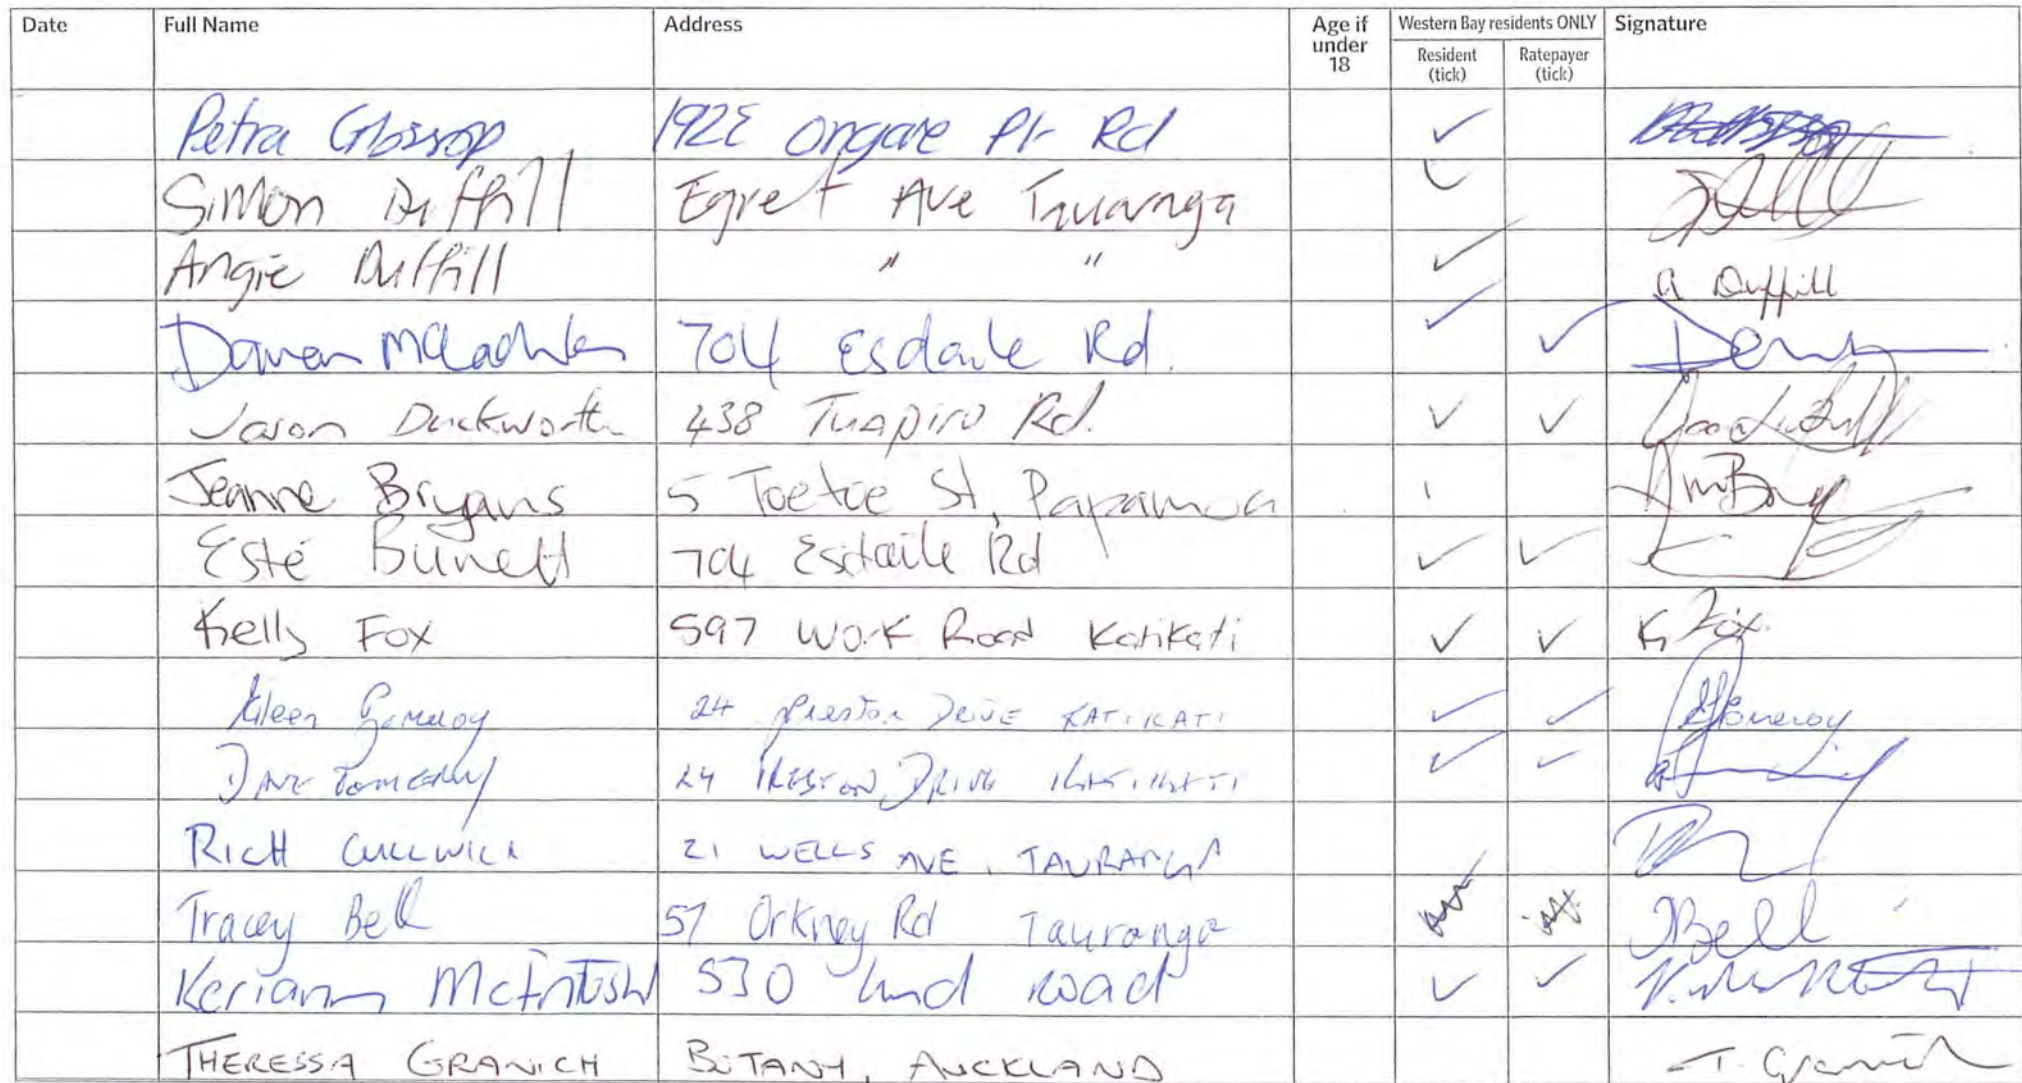 Date Full Name Address Age if under 18 Western Bay residents ONLY Resident (tick) Ratepayer (tick) Signature
Petra Glossop 192E Ongare Pt Rd
Simon Duffill Egret Ave Tauranga
Angie Duffill " " A Duffill
Darren McLachlan 704 Esdaile Rd.
Jason Duckworth 438 Tuapiro Rd.
Jeanne Bryans 5 Toetoe St, Papamoa
Esté Burnett 704 Esdaile Rd
Kelly Fox 597 Work Road Katikati K Fox
Aileen Pomeroy 24 Preston Drive KATIKATI Pomeroy
DAVE Pomeroy 24 PRESTON DRIVE KATIKATI
RICH CULLWICK 21 WELLS AVE, TAURANGA
Tracey Bell 57 Orkney Rd Tauranga TBell
Keriann McIntosh 530 Lund Road
THERESSA GRANICH BOTANY, AUCKLAND T. Granich